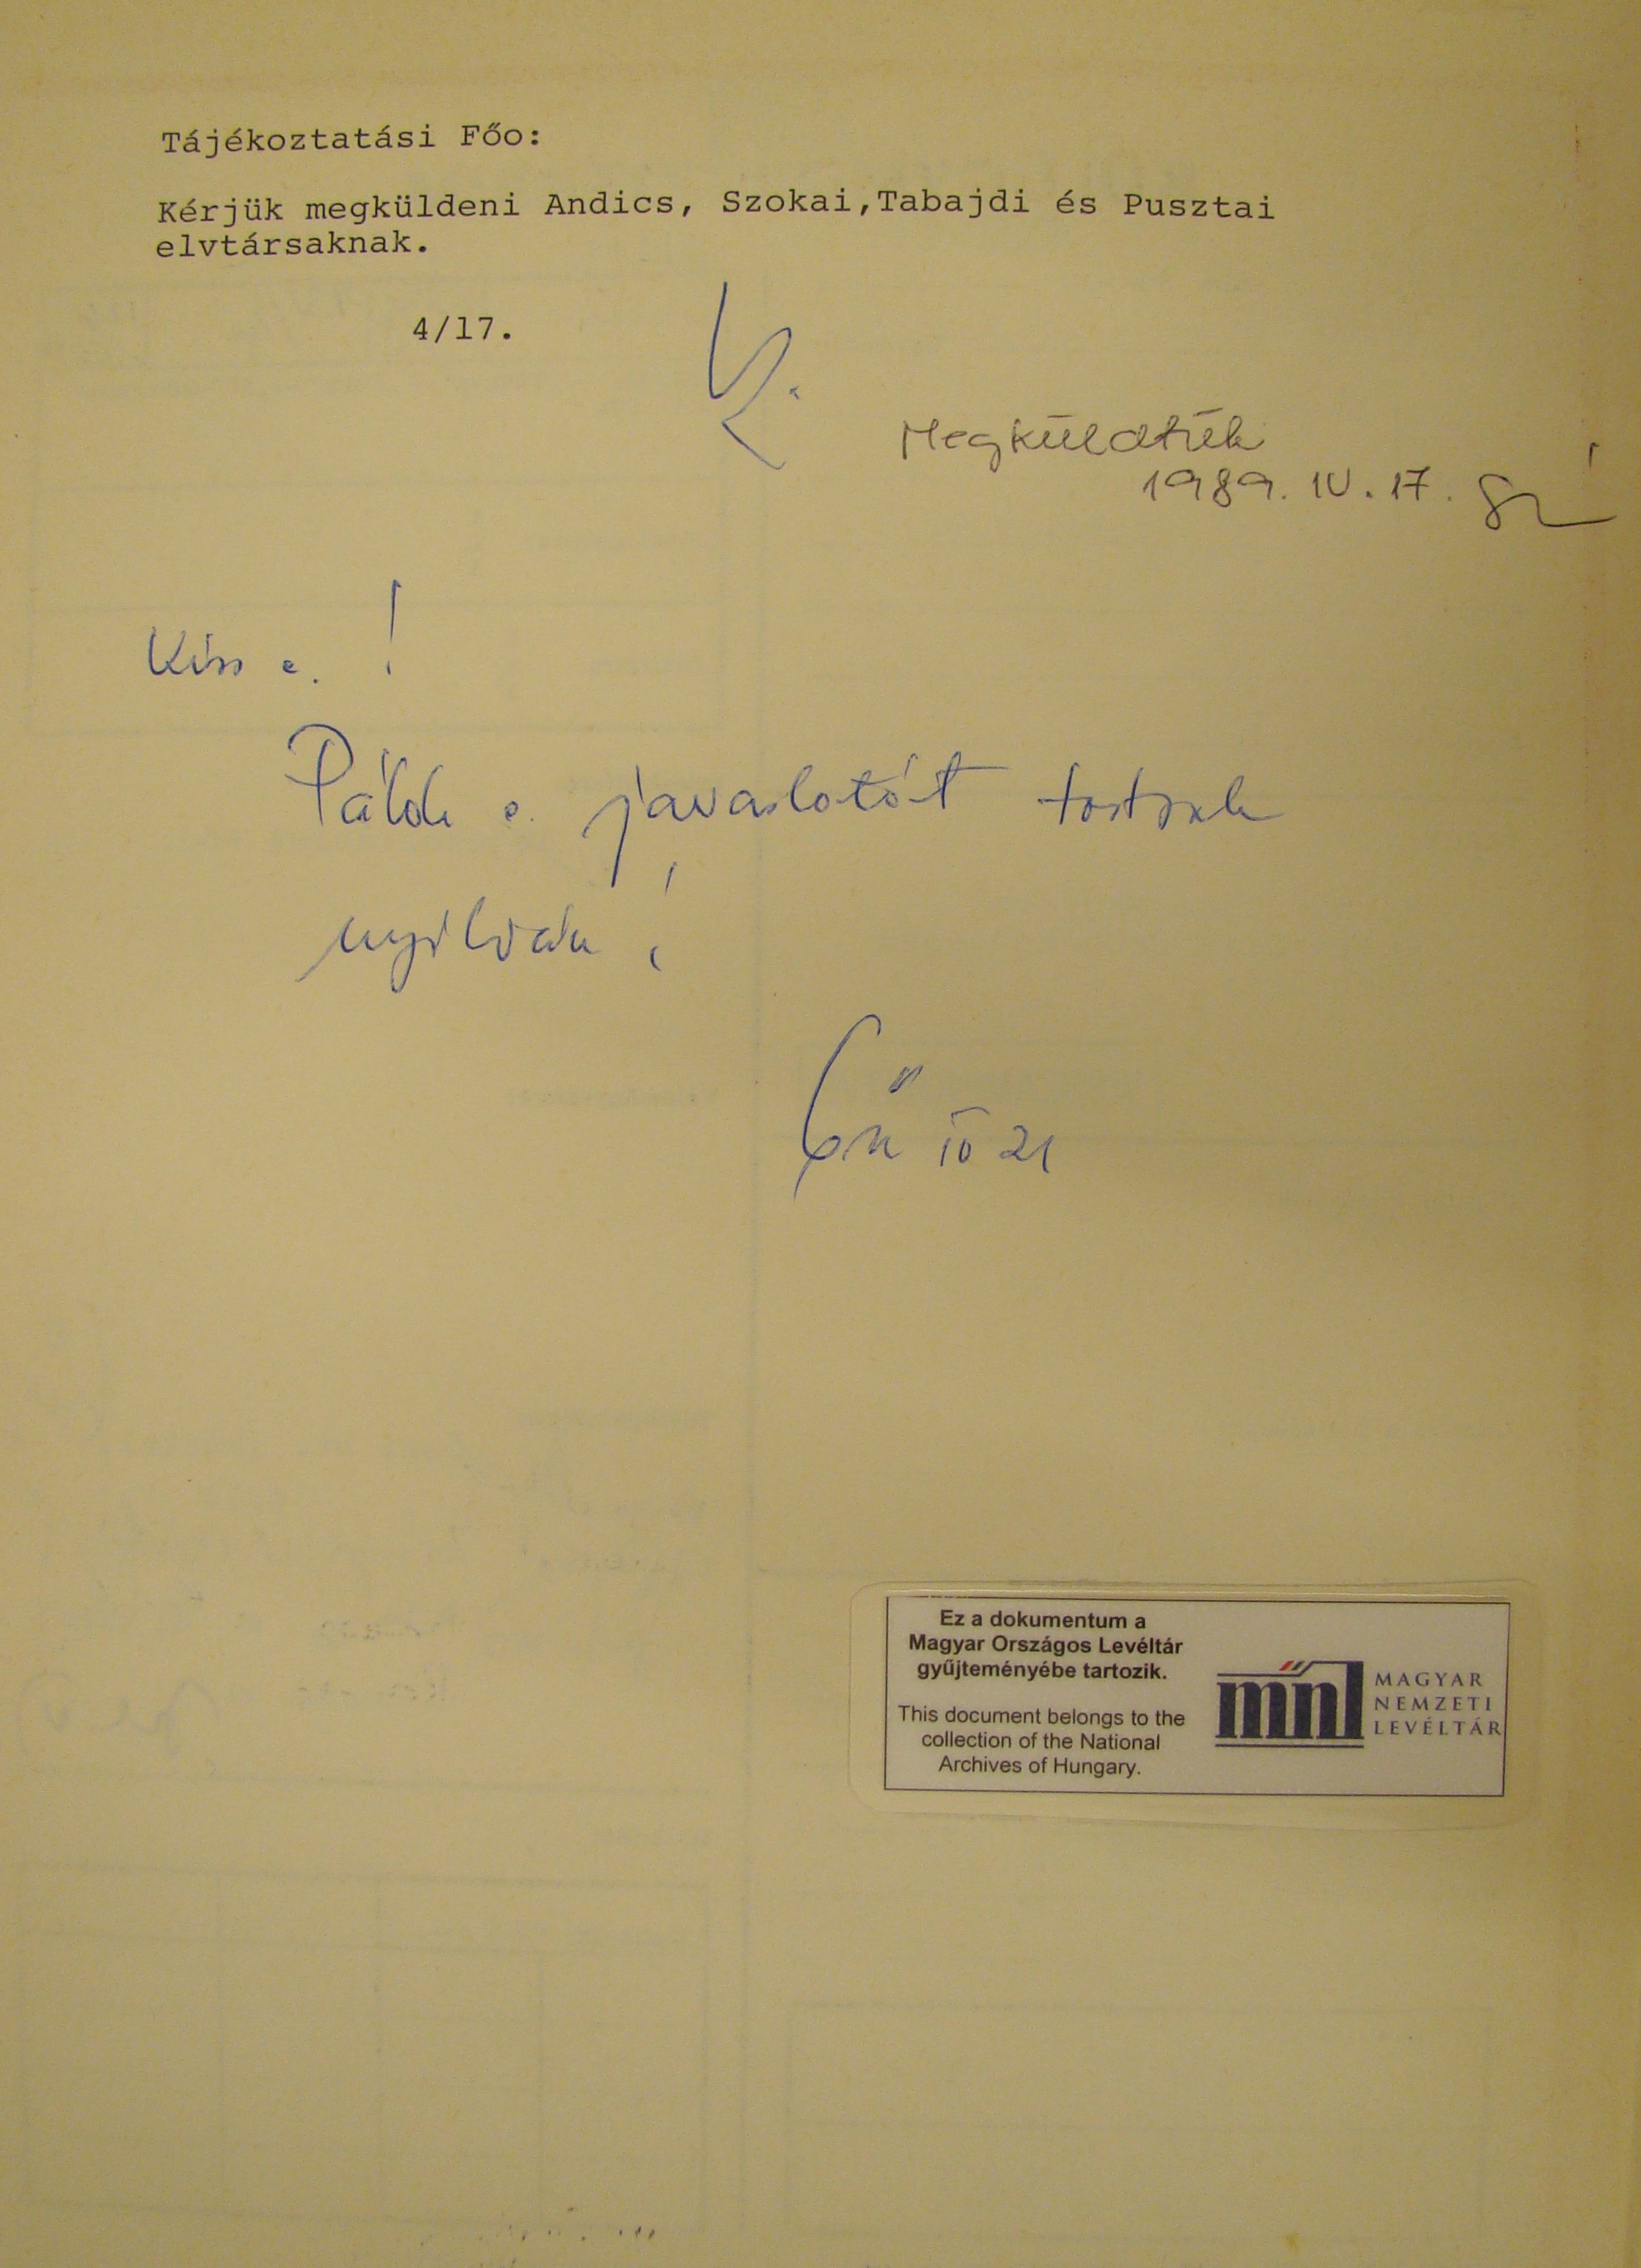 Tájékoztatási Főo:
Kérjük megküldeni Andics, Szokai,Tabajdi és Pusztai
elvtársaknak.
4/17.
K.
Megküldtük
1989. IV. 17.
Kiss e. !
e. javaslatát
nyilván!
IV 21
Ez a dokumentum a
Magyar Országos Levéltár
gyűjteményébe tartozik.
This document belongs to the
collection of the National
Archives of Hungary.
mnl
MAGYAR
NEMZETI
LEVÉLTÁR